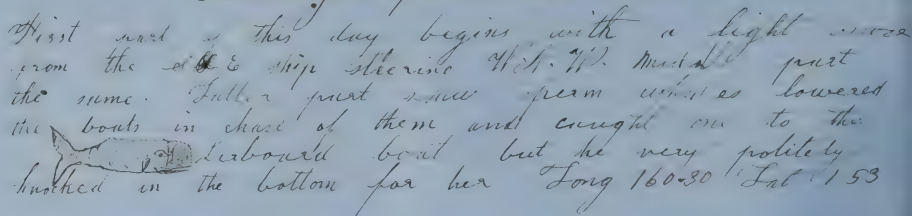 First part of this day begins with a light
from the E ship stearing W.N.W. Middle part
the same. Latter part saw sperm whales lowered
the boats in chase of them and caught one to the
starboard boat but he very politely
knocked in the bottom for her Long 160-30 Lat 1 53